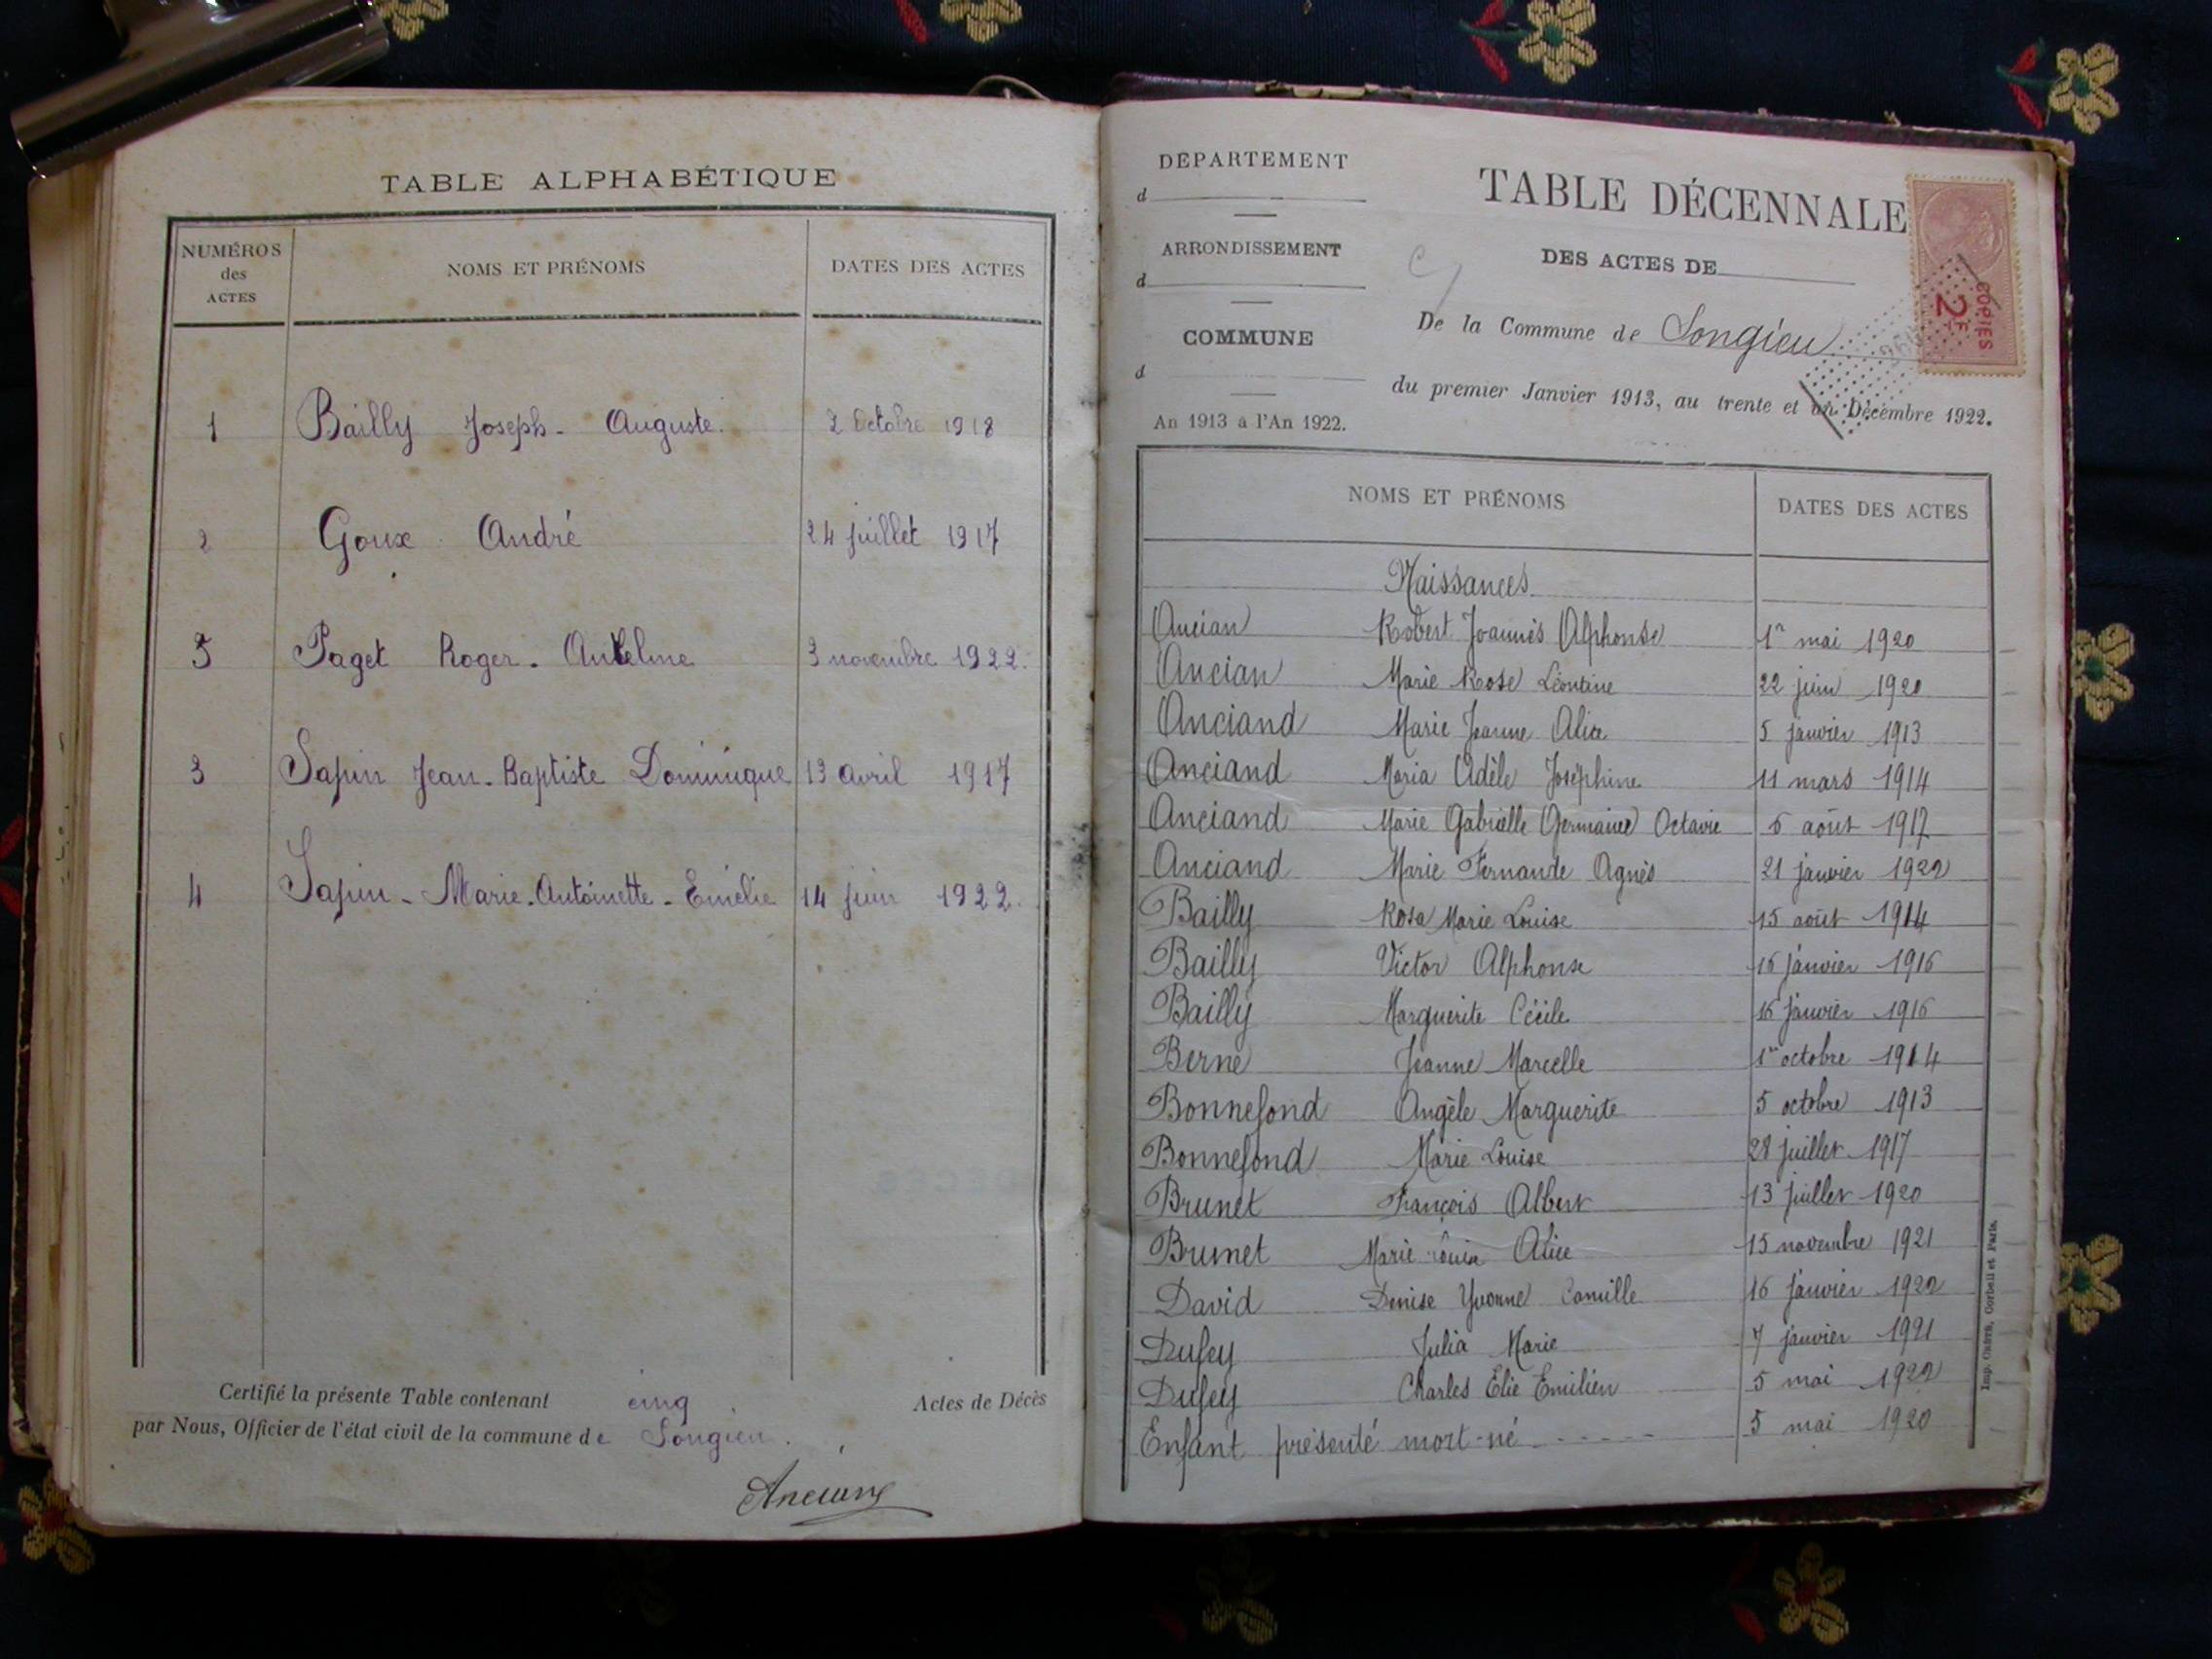 TABLE ALPHABÉTIQUE
NUMÉROS des ACTES NOMS ET PRÉNOMS DATES DES ACTES
1 Bailly Joseph - Auguste. 2 Octobre 1918
2 Goux André 24 juillet 1917
5 Paget Roger - Antelme 3 novembre 1922.
3 Sapin Jean-Baptiste Dominique 13 avril 1917
4 Sapin - Marie-Antoinette - Emélie 14 juin 1922.
Certifié la présente Table contenant cinq Actes de Décès
par Nous, Officier de l'état civil de la commune de Songieu.
DÉPARTEMENT
d
ARRONDISSEMENT
d
COMMUNE
d
An 1913 à l'An 1922.
TABLE DÉCENNALE
DES ACTES DE
De la Commune de Songieu
du premier Janvier 1913, au trente et un Décembre 1922.
COPIES 2F
NOMS ET PRÉNOMS DATES DES ACTES
Naissances
Ancian Robert Joannès Alphonse 1er mai 1920
Ancian Marie Rose Léontine 22 juin 1920
Anciand Marie Jeanne Alice 5 janvier 1913
Anciand Maria Adèle Joséphine 11 mars 1914
Anciand Marie Gabrielle Germaine Octavie 6 août 1917
Anciand Marie Fernande Agnès 21 janvier 1922
Bailly Rosa Marie Louise 15 août 1914
Bailly Victor Alphonse 16 janvier 1916
Bailly Marguerite Cécile 16 janvier 1916
Berne Jeanne Marcelle 1er octobre 1914
Bonnefond Angèle Marguerite 5 octobre 1913
Bonnefond Marie Louise 28 juillet 1917
Brunet François Albert 13 juillet 1920
Brunet Marie Louise Alice 15 novembre 1921
David Denise Yvonne Camille 16 janvier 1922
Dufey Julia Marie 7 janvier 1921
Dufey Charles Elie Emilien 5 mai 1922
Enfant présenté mort-né - - - - - 5 mai 1920